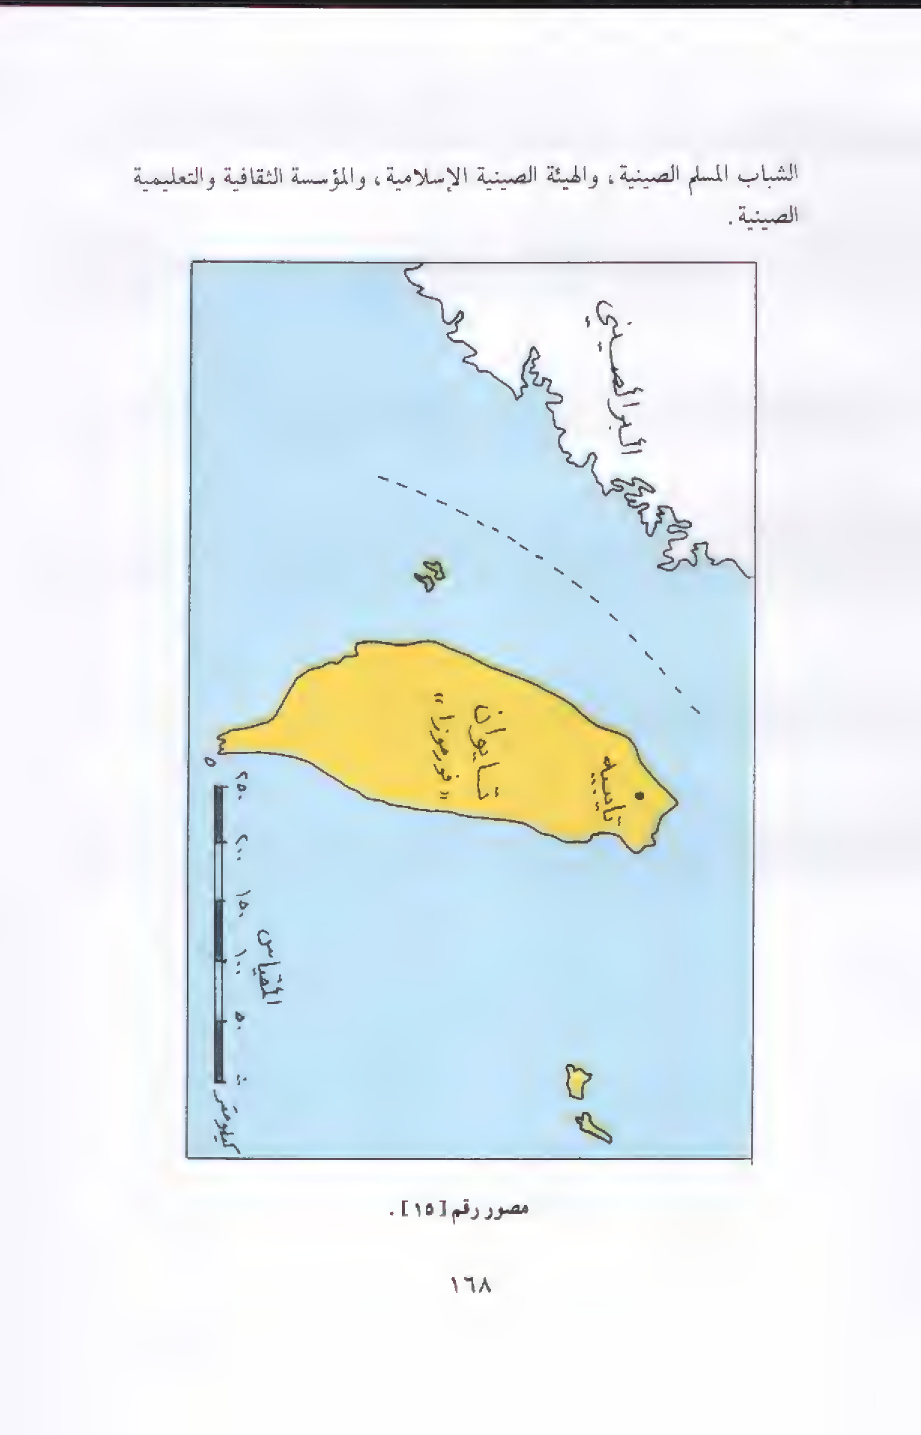 الشباب المسلم الصينية، والهيئة الصينية الإسلامية، والمؤسسة الثقافية والتعليمية
الصينية.
البر الصيني
تايوان
«فورموزا»
تايبيه
المقياس
٢٥٠ ٢٠٠ ١٥٠ ١٠٠ ٥٠
كيلومتر
مصور رقم [١٥].
١٦٨